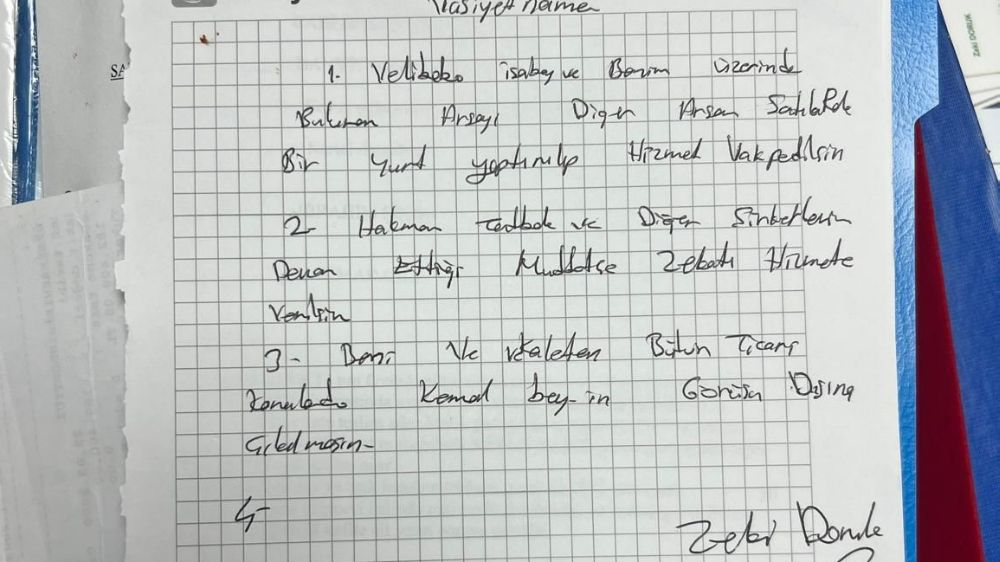 Vasiyetname
1- Velibaba isabey ve Benim üzerinde
Bulunan Arsayı Diğer Arsam Satılarak
Bir yurt yaptırılıp Hizmet Vakfedilsin
2- Hakman ve Diğer Şirketlerin
Devam Ettiği Müddetçe Zekatı Hizmete
Verilsin
3- Beni Ve Bütün Ticari
Konularda Kemal bey-in Görüşü Dışına
Çıkılmasın-
4-
Zeki
ZEKİ DORUK